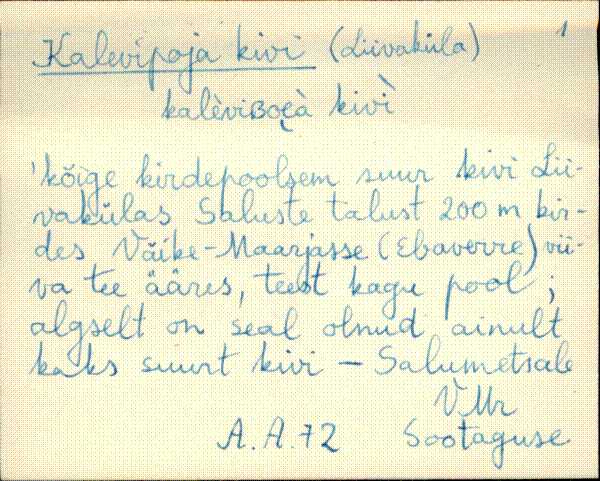 Kalevipoja kivi (Liivaküla) 1
kalèviʙoɛ̨à kivì
'kõige kirdepoolsem suur kivi Lii-
vakülas Saluste talust 200 m kir-
des Väike-Maarjasse (Ebaverre) vii-
va tee ääres, teest kagu pool;
algselt on seal olnud ainult
kaks suurt kivi – Salumetsale
VMr
A. A. 72 Sootaguse